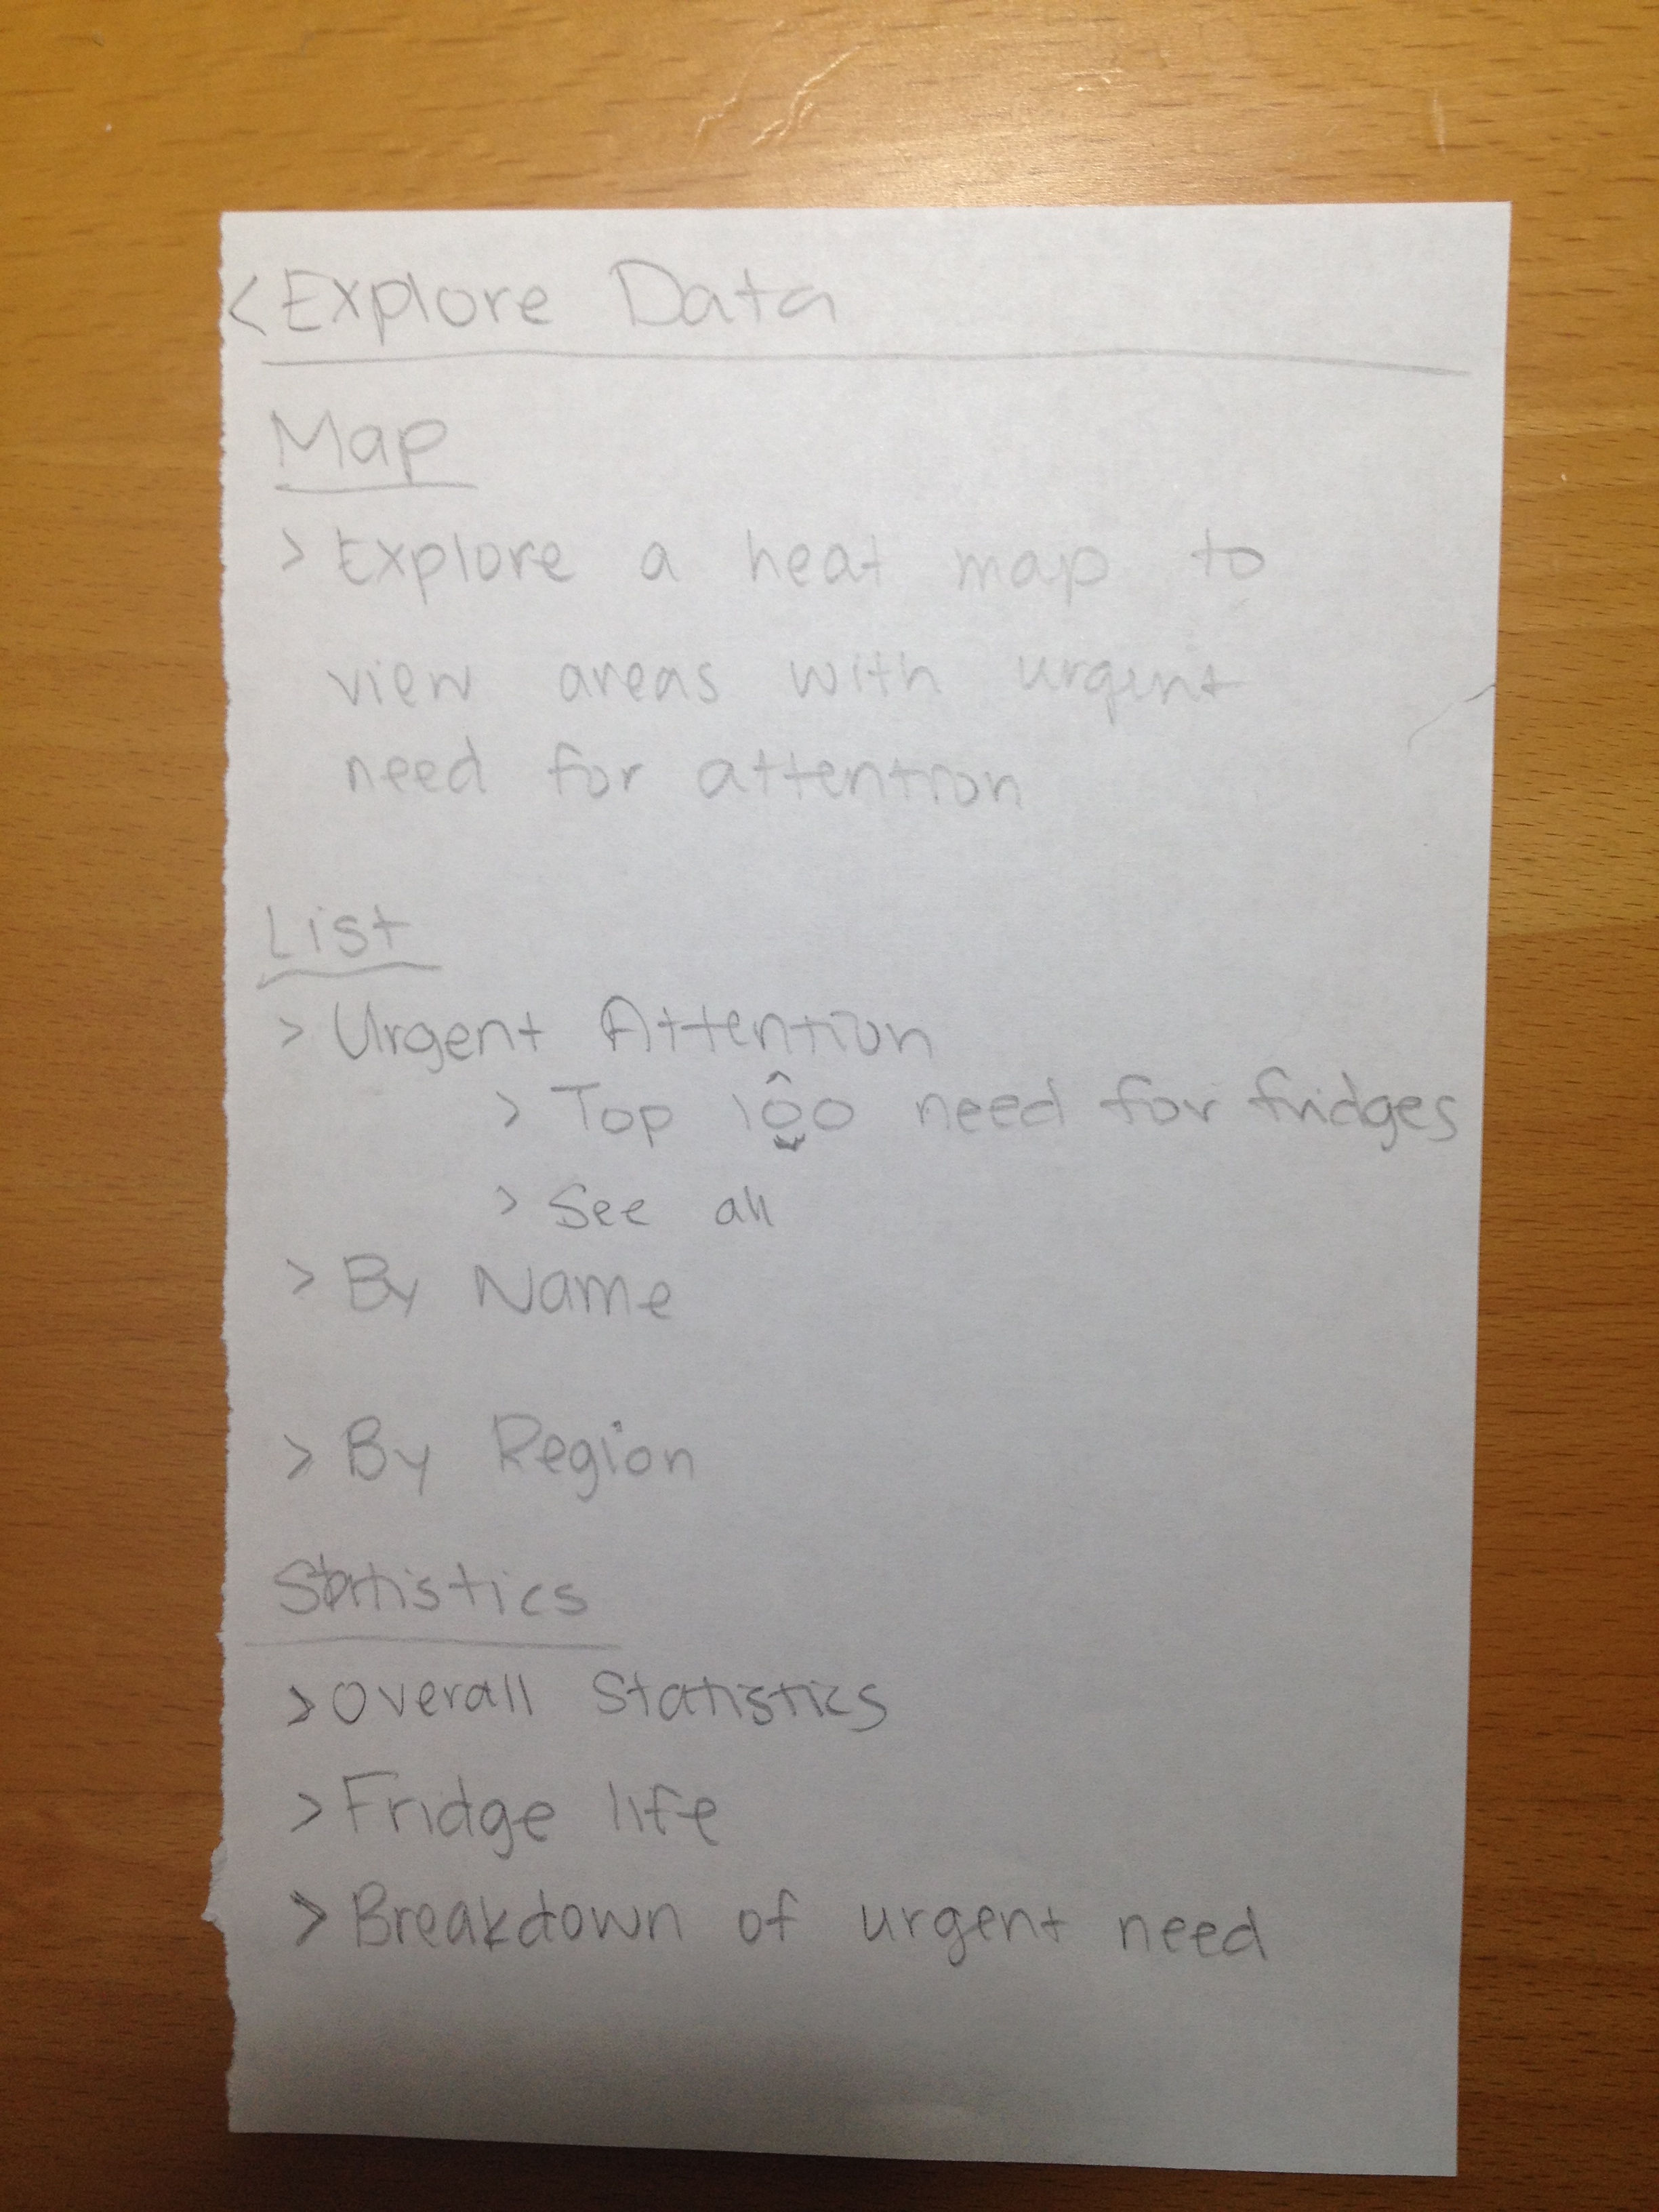 < Explore Data
Map
> Explore a heat map to
view areas with urgent
need for attention
List
> Urgent Attention
> Top 100 need for fridges
> See all
> By Name
> By Region
Statistics
> Overall Statistics
> Fridge life
> Breakdown of urgent need